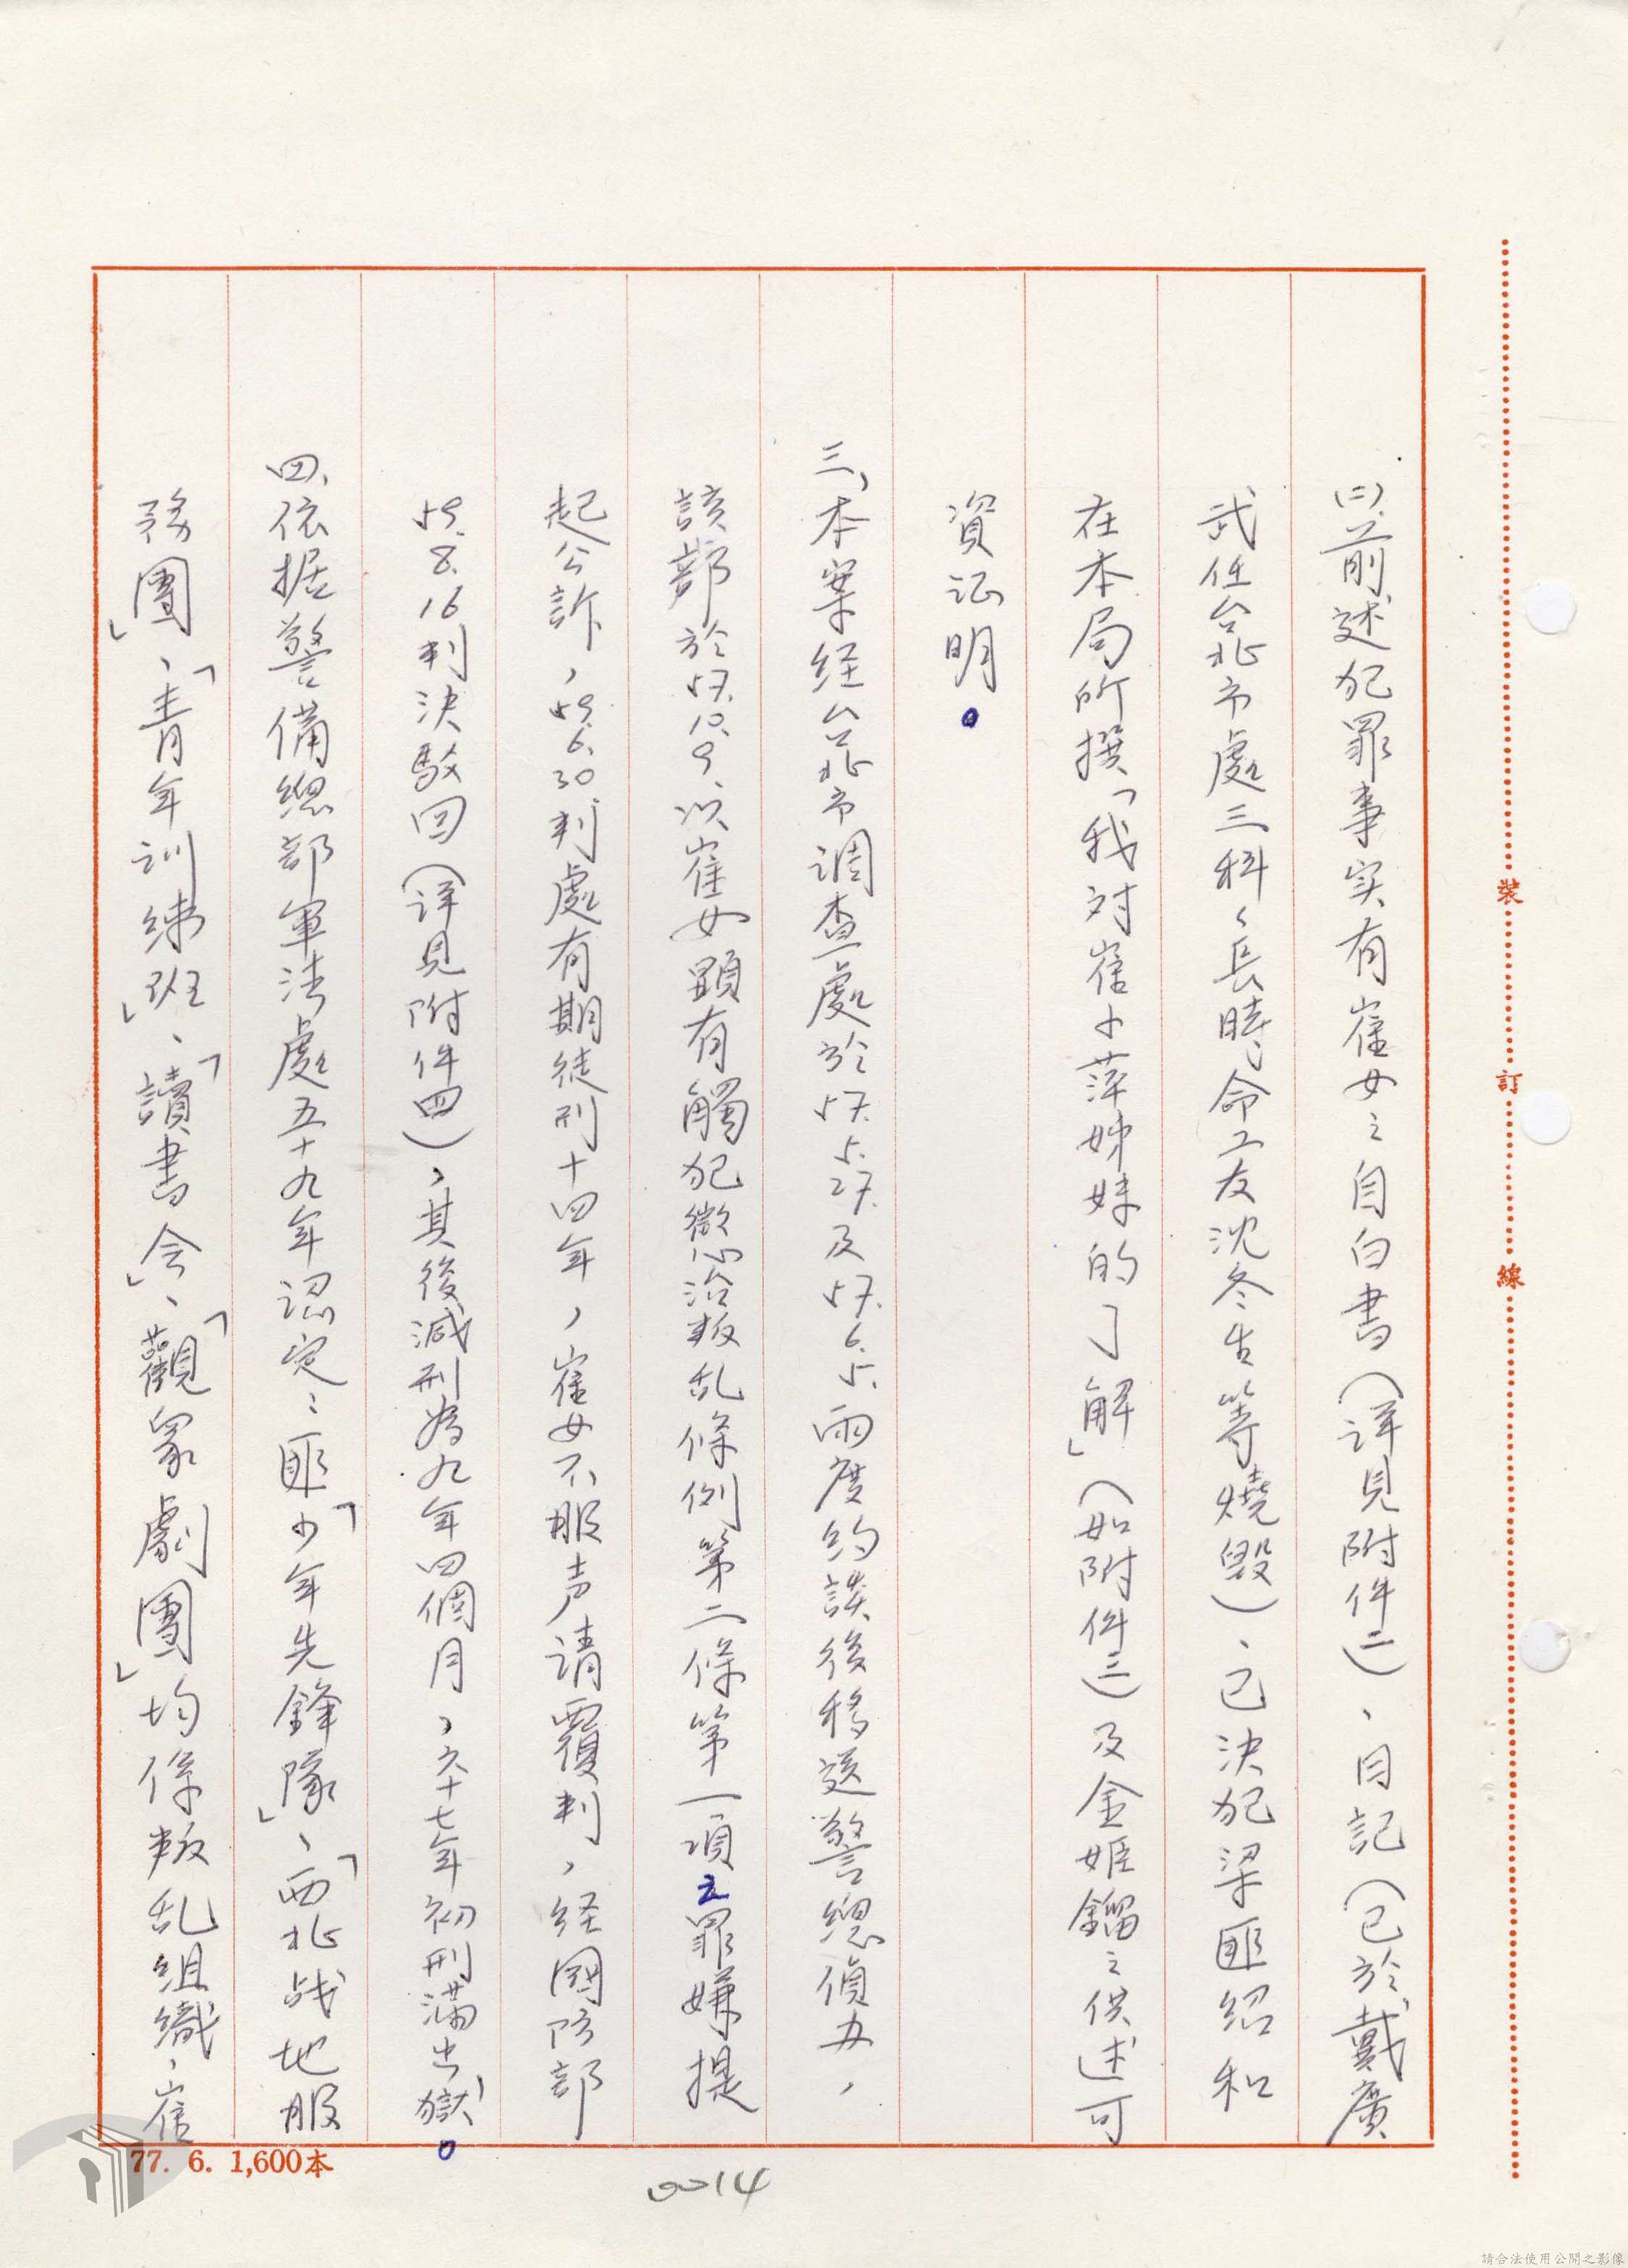 ㈡、前述犯罪事实有崔女之自白書（详見附件二）、日記（已於戴廣
武任台北市處三科々長時、命工友沈冬生等燒毀）、已決犯梁匪紹和
在本局所撰「我对崔小萍姊妹的了解」（如附件三）及金姬鎦之供述可
資证明。
三、本案经台北市调查處於57.5.27.及57.6.5.兩度约談後移送警總偵办，
該部於57.10.9、以崔女顕有觸犯懲治叛乱條例第二條第一項之罪嫌提
起公訴，59.6.30判處有期徒刑十四年，崔女不服声请覆判，经國防部
59.8.16判決駁回（详見附件四），其後減刑為九年四個月，六十七年初刑满出獄。
四、依据警備總部軍法處五十九年認定：匪「少年先鋒隊」、「西北战地服
務團」、「青年训练班」、「讀書会」、「觀衆劇團」均係叛乱組織，崔
裝
訂
線
77. 6. 1,600本
0014
請合法使用公開之影像